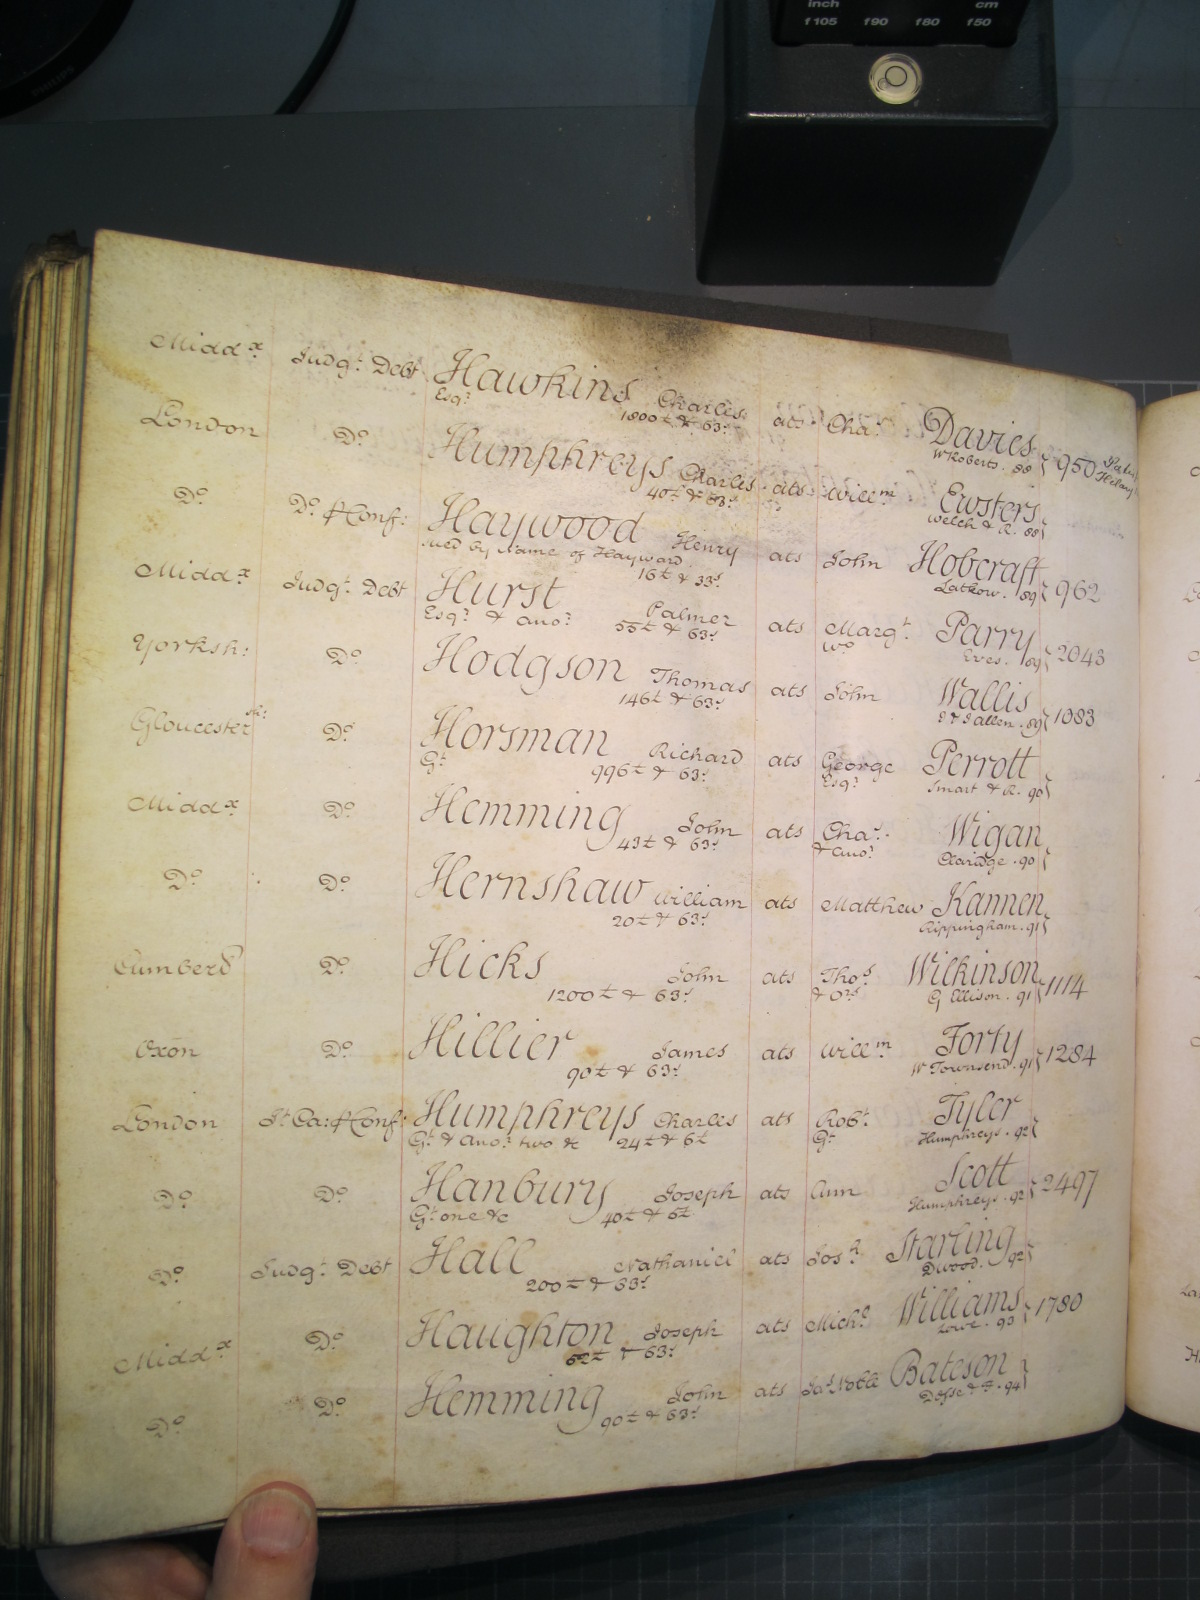 inch cm
f105 f90 f80 f50
PHILIPS
Midd.x Judg.t Debt Hawkins Charles ats Cha.s Davies 950
Esq.r 1800£ & 63.s W Roberts . 88
London D.o Humphreys Charles ats Will.m Ewsters
40£ & 63.s Welch & R. 88
D.o D.o & Conf: Haywood Henry ats John Hobcraft 962
sued by Name of Hayward 16£ & 33.s Latkow . 89
Midd.x Judg.t Debt Hurst Palmer ats Marg.t Parry 2043
Esq.r & Ano.r 55£ & 63.s W.o Eves . 89
Yorksh: D.o Hodgson Thomas ats John Wallis 1083
146£ & 63.s E & J Allen . 89
Gloucester sh: D.o Horsman Richard ats George Perrott
G.t 996£ & 63.s Esq.r Smart & R. 90
Midd.x D.o Hemming John ats Cha.s Wigan
43£ & 63.s & Ano.r Claridge . 90
D.o D.o Hernshaw William ats Matthew Kannen
20£ & 63.s Rippingham . 91
Cumberd D.o Hicks John ats Tho.s Wilkinson 1114
1200£ & 63.s & Or.s G Ellison . 91
Oxon D.o Hillier James ats Will.m Forty 1284
90£ & 63.s W Townsend . 91
London J.t Ca: & Conf: Humphreys Charles ats Rob.t Tyler
G.t & Ano.r two &c 24£ & 6£ G.t Humphreys . 92
D.o D.o Hanbury Joseph ats Ann Scott 2497
G.t one &c 40£ & 5£ Humphreys . 92
D.o Judg.t Debt Hall Nathaniel ats Jos.h Starling
200£ & 63.s Dwood . 92
Midd.x D.o Haughton Joseph ats Mich.l Williams 1780
62£ & 63.s Lowe . 93
D.o D.o Hemming John ats Ja.s Noble Bateson
90£ & 63.s 94